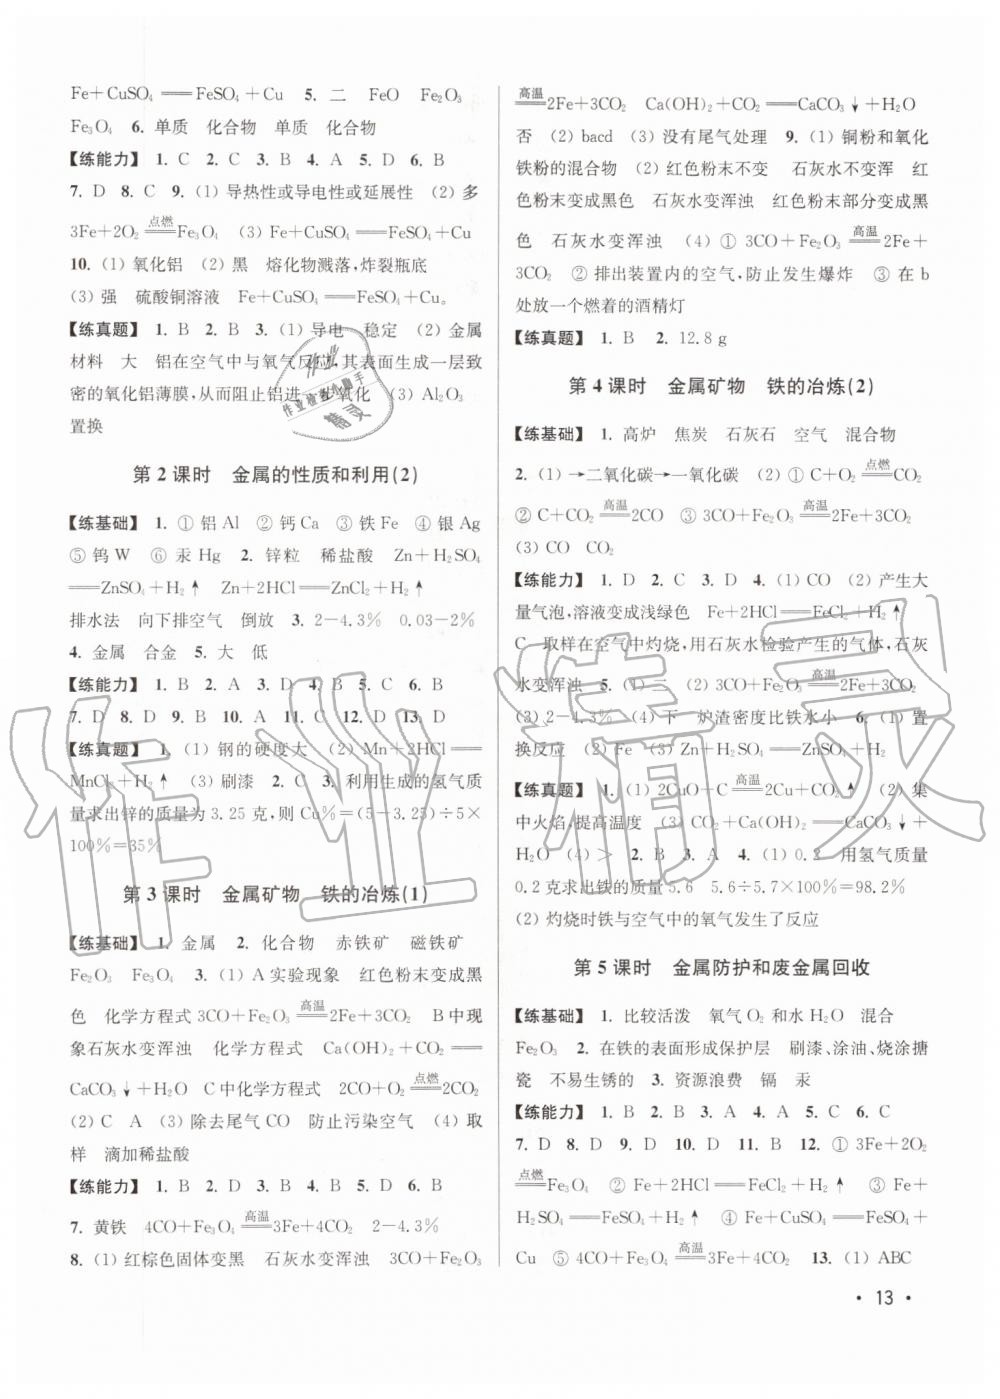 Fe＋CuSO₄══FeSO₄＋Cu 5. 二 FeO Fe₂O₃
Fe₃O₄ 6. 单质 化合物 单质 化合物
【练能力】 1. C 2. C 3. B 4. A 5. D 6. B
7. D 8. C 9. (1) 导热性或导电性或延展性 (2) 多
3Fe＋2O₂ ══点燃 Fe₃O₄ (3) Fe＋CuSO₄══FeSO₄＋Cu
10. (1) 氧化铝 (2) 黑 熔化物溅落，炸裂瓶底
(3) 强 硫酸铜溶液 Fe＋CuSO₄══FeSO₄＋Cu。
【练真题】 1. B 2. B 3. (1) 导电 稳定 (2) 金属
材料 大 铝在空气中与氧气反应，其表面生成一层致
密的氧化铝薄膜，从而阻止铝进一步氧化 (3) Al₂O₃
置换
第 2 课时 金属的性质和利用(2)
【练基础】 1. ① 铝 Al ② 钙 Ca ③ 铁 Fe ④ 银 Ag
⑤ 钨 W ⑥ 汞 Hg 2. 锌粒 稀盐酸 Zn＋H₂SO₄
══ZnSO₄＋H₂↑ Zn＋2HCl══ZnCl₂＋H₂↑
排水法 向下排空气 倒放 3. 2－4.3％ 0.03－2％
4. 金属 合金 5. 大 低
【练能力】 1. B 2. A 3. D 4. B 5. C 6. B
7. D 8. D 9. B 10. A 11. C 12. D 13. D
【练真题】 1. (1) 钢的硬度大 (2) Mn＋2HCl══
MnCl₂＋H₂↑ (3) 刷漆 2. C 3. 利用生成的氢气质
量求出锌的质量为 3.25 克，则 Cu％＝(5－3.25)÷5×
100％＝35％
第 3 课时 金属矿物 铁的冶炼(1)
【练基础】 1. 金属 2. 化合物 赤铁矿 磁铁矿
Fe₂O₃ Fe₃O₄ 3. (1) A 实验现象 红色粉末变成黑
色 化学方程式 3CO＋Fe₂O₃ ══高温 2Fe＋3CO₂ B 中现
象石灰水变浑浊 化学方程式 Ca(OH)₂＋CO₂══
CaCO₃↓＋H₂O C 中化学方程式 2CO＋O₂ ══点燃 2CO₂
(2) C A (3) 除去尾气 CO 防止污染空气 (4) 取
样 滴加稀盐酸
【练能力】 1. B 2. D 3. B 4. D 5. B 6. B
7. 黄铁 4CO＋Fe₃O₄ ══高温 3Fe＋4CO₂ 2－4.3％
8. (1) 红棕色固体变黑 石灰水变浑浊 3CO＋Fe₂O₃
══高温 2Fe＋3CO₂ Ca(OH)₂＋CO₂══CaCO₃↓＋H₂O
否 (2) bacd (3) 没有尾气处理 9. (1) 铜粉和氧化
铁粉的混合物 (2) 红色粉末不变 石灰水不变浑 红
色粉末变成黑色 石灰水变浑浊 红色粉末部分变成黑
色 石灰水变浑浊 (4) ① 3CO＋Fe₂O₃ ══高温 2Fe＋
3CO₂ ② 排出装置内的空气，防止发生爆炸 ③ 在 b
处放一个燃着的酒精灯
【练真题】 1. B 2. 12.8 g
第 4 课时 金属矿物 铁的冶炼(2)
【练基础】 1. 高炉 焦炭 石灰石 空气 混合物
2. (1) →二氧化碳→一氧化碳 (2) ① C＋O₂ ══点燃 CO₂
② C＋CO₂ ══高温 2CO ③ 3CO＋Fe₂O₃ ══高温 2Fe＋3CO₂
(3) CO CO₂
【练能力】 1. D 2. C 3. D 4. (1) CO (2) 产生大
量气泡，溶液变成浅绿色 Fe＋2HCl══FeCl₂＋H₂↑
C 取样在空气中灼烧，用石灰水检验产生的气体，石灰
水变浑浊 5. (1) 二 (2) 3CO＋Fe₂O₃ ══高温 2Fe＋3CO₂
(3) 2－4.3％ (4) 下 炉渣密度比铁水小 6. (1) 置
换反应 (2) Fe (3) Zn＋H₂SO₄══ZnSO₄＋H₂
【练真题】 1. (1) 2CuO＋C ══高温 2Cu＋CO₂↑ (2) 集
中火焰，提高温度 (3) CO₂＋Ca(OH)₂══CaCO₃↓＋
H₂O (4) ＞ 2. B 3. A 4. (1) 0.2 用氢气质量
0.2 克求出铁的质量 5.6 5.6÷5.7×100％＝98.2％
(2) 灼烧时铁与空气中的氧气发生了反应
第 5 课时 金属防护和废金属回收
【练基础】 1. 比较活泼 氧气 O₂ 和水 H₂O 混合
Fe₂O₃ 2. 在铁的表面形成保护层 刷漆、涂油、烧涂搪
瓷 不易生锈的 3. 资源浪费 镉 汞
【练能力】 1. B 2. B 3. A 4. A 5. C 6. C
7. D 8. D 9. D 10. D 11. B 12. ① 3Fe＋2O₂
══点燃 Fe₃O₄ ② Fe＋2HCl══FeCl₂＋H₂↑ ③ Fe＋
H₂SO₄══FeSO₄＋H₂↑ ④ Fe＋CuSO₄══FeSO₄＋
Cu ⑤ 4CO＋Fe₃O₄ ══高温 3Fe＋4CO₂ 13. (1) ABC
• 13 •
作业精灵
作业检查小助手